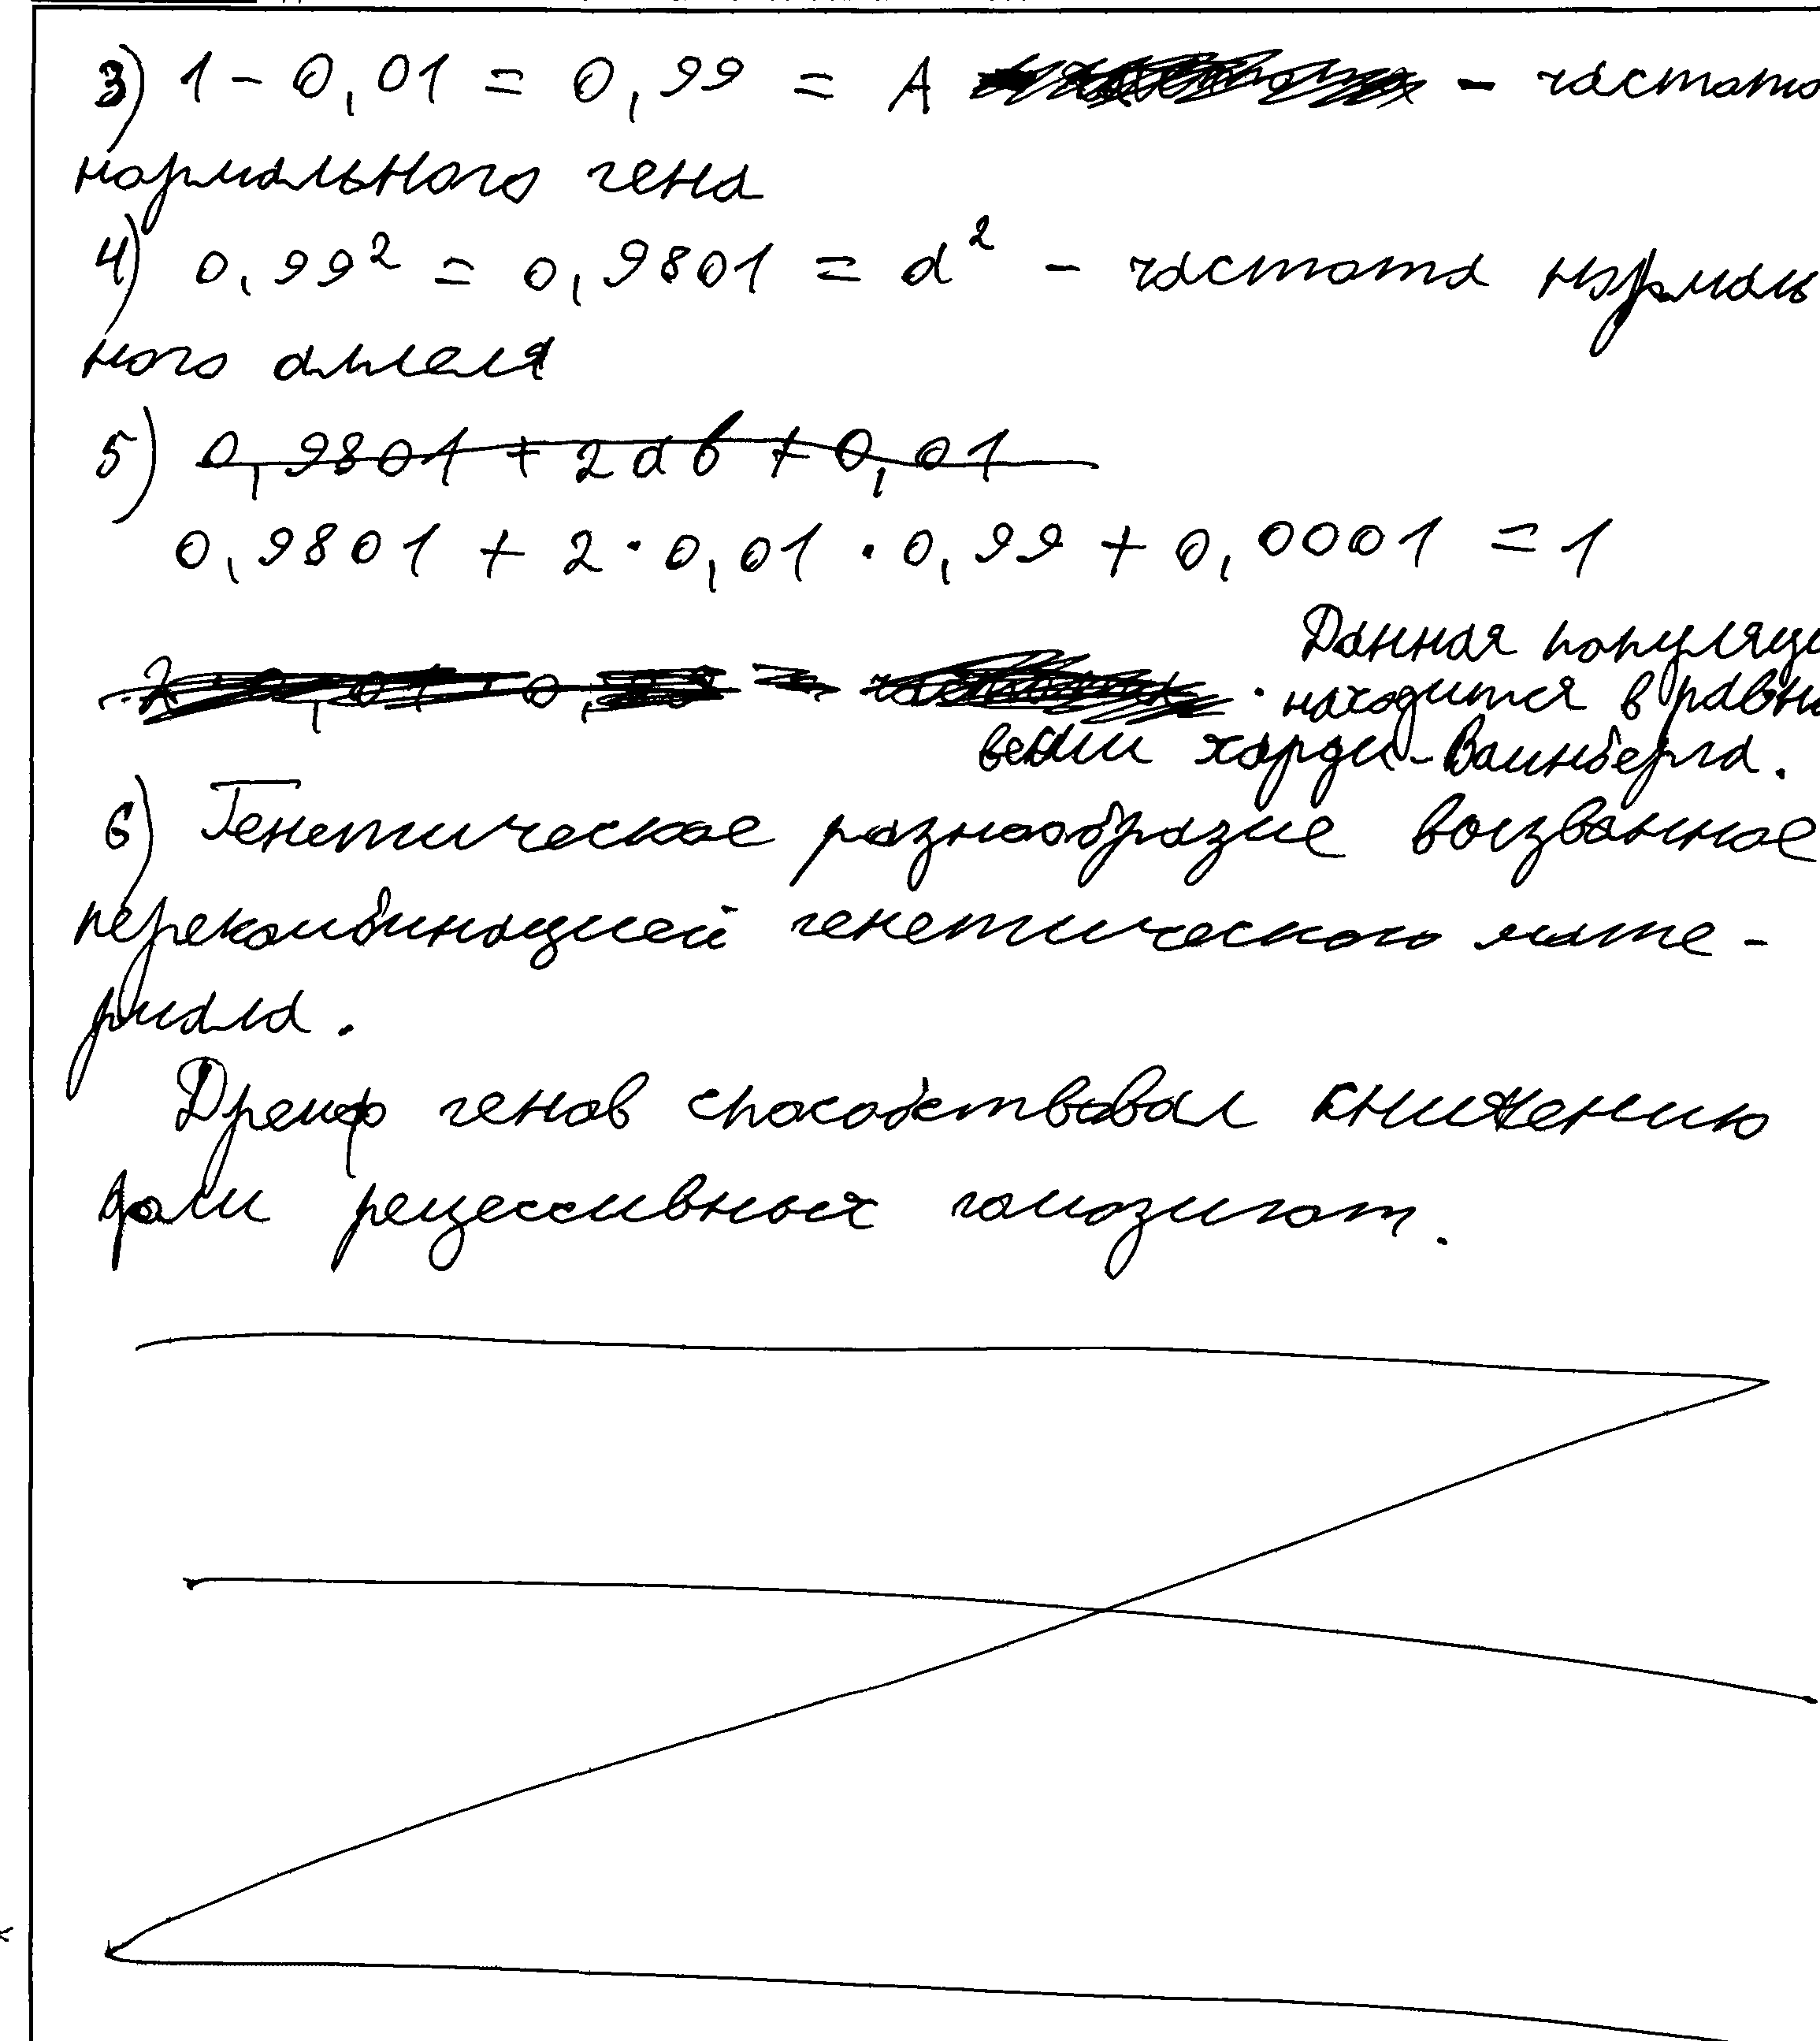 3) 1 - 0,01 = 0,99 = A - частота
нормального гена
4) 0,99² = 0,9801 = a² - частота нормаль
ного аллеля
5) 0,9801 + 2ab + 0,01
0,9801 + 2 · 0,01 · 0,99 + 0,0001 = 1
Данная популяци
находится в равно
весии харди-Ваинберга.
6) Генетическое разнообразие вызванное
перекомбинацией генетического мате-
риала.
Дрейф генов способствовал снижению
доли рецессивных гомозигот.